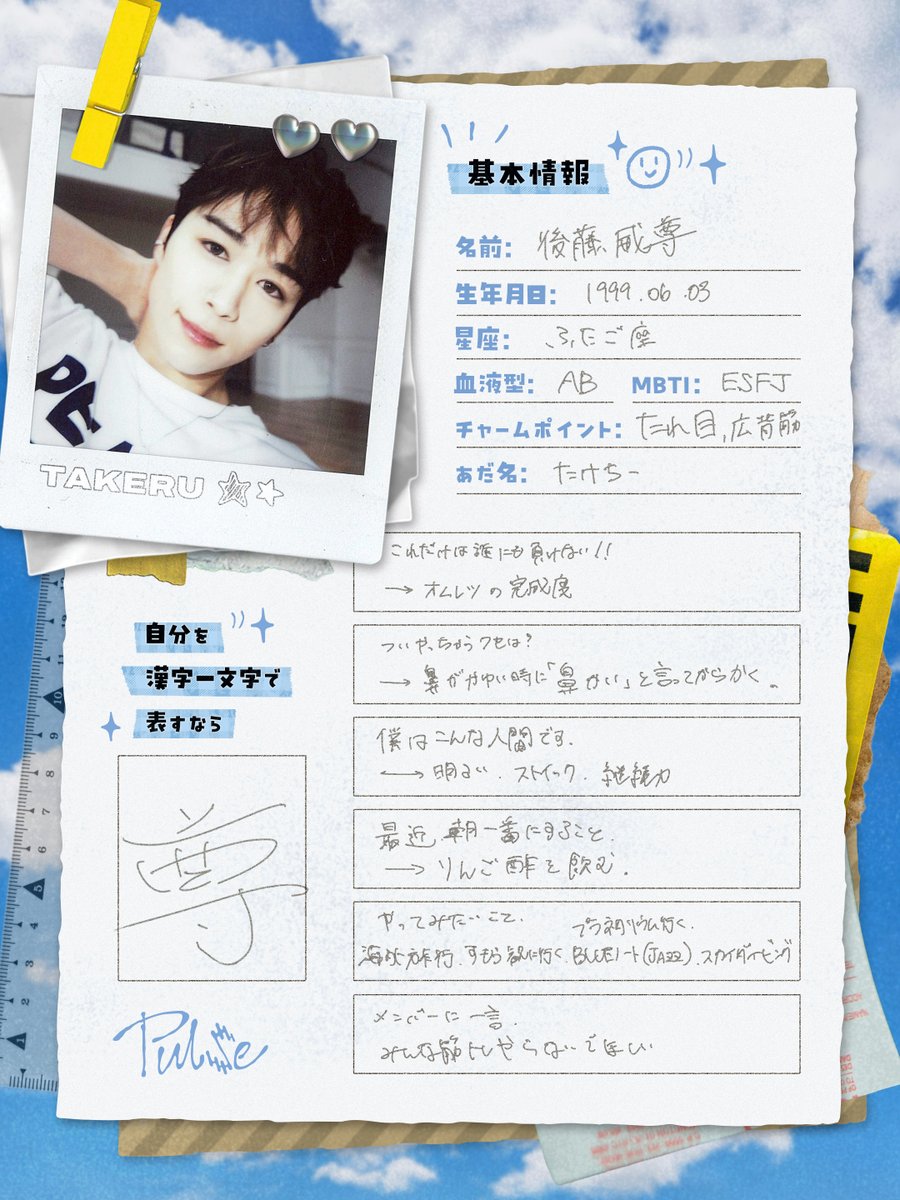 TAKERU
基本情報
名前: 後藤威尊
生年月日: 1999.06.03
星座: ふたご座
血液型: AB MBTI: ESFJ
チャームポイント: たれ目,広背筋
あだ名: たけちー
これだけは誰にも負けない!!
→ オムレツの完成度
ついやっちゃうクセは?
→ 鼻がかゆい時に「鼻かい」と言ってからかく。
僕はこんな人間です.
→ 明るい.ストイック.継続力
最近、朝一番にすること.
→ りんご酢を飲む.
やってみたいこと. プラネタリウム行く.
海外旅行.すもう観に行く.BLUEノート(JAZZ).スカイダイビング
メンバーに一言.
みんな筋トレやらないでほしい
自分を
漢字一文字で
表すなら
尊
Pulse